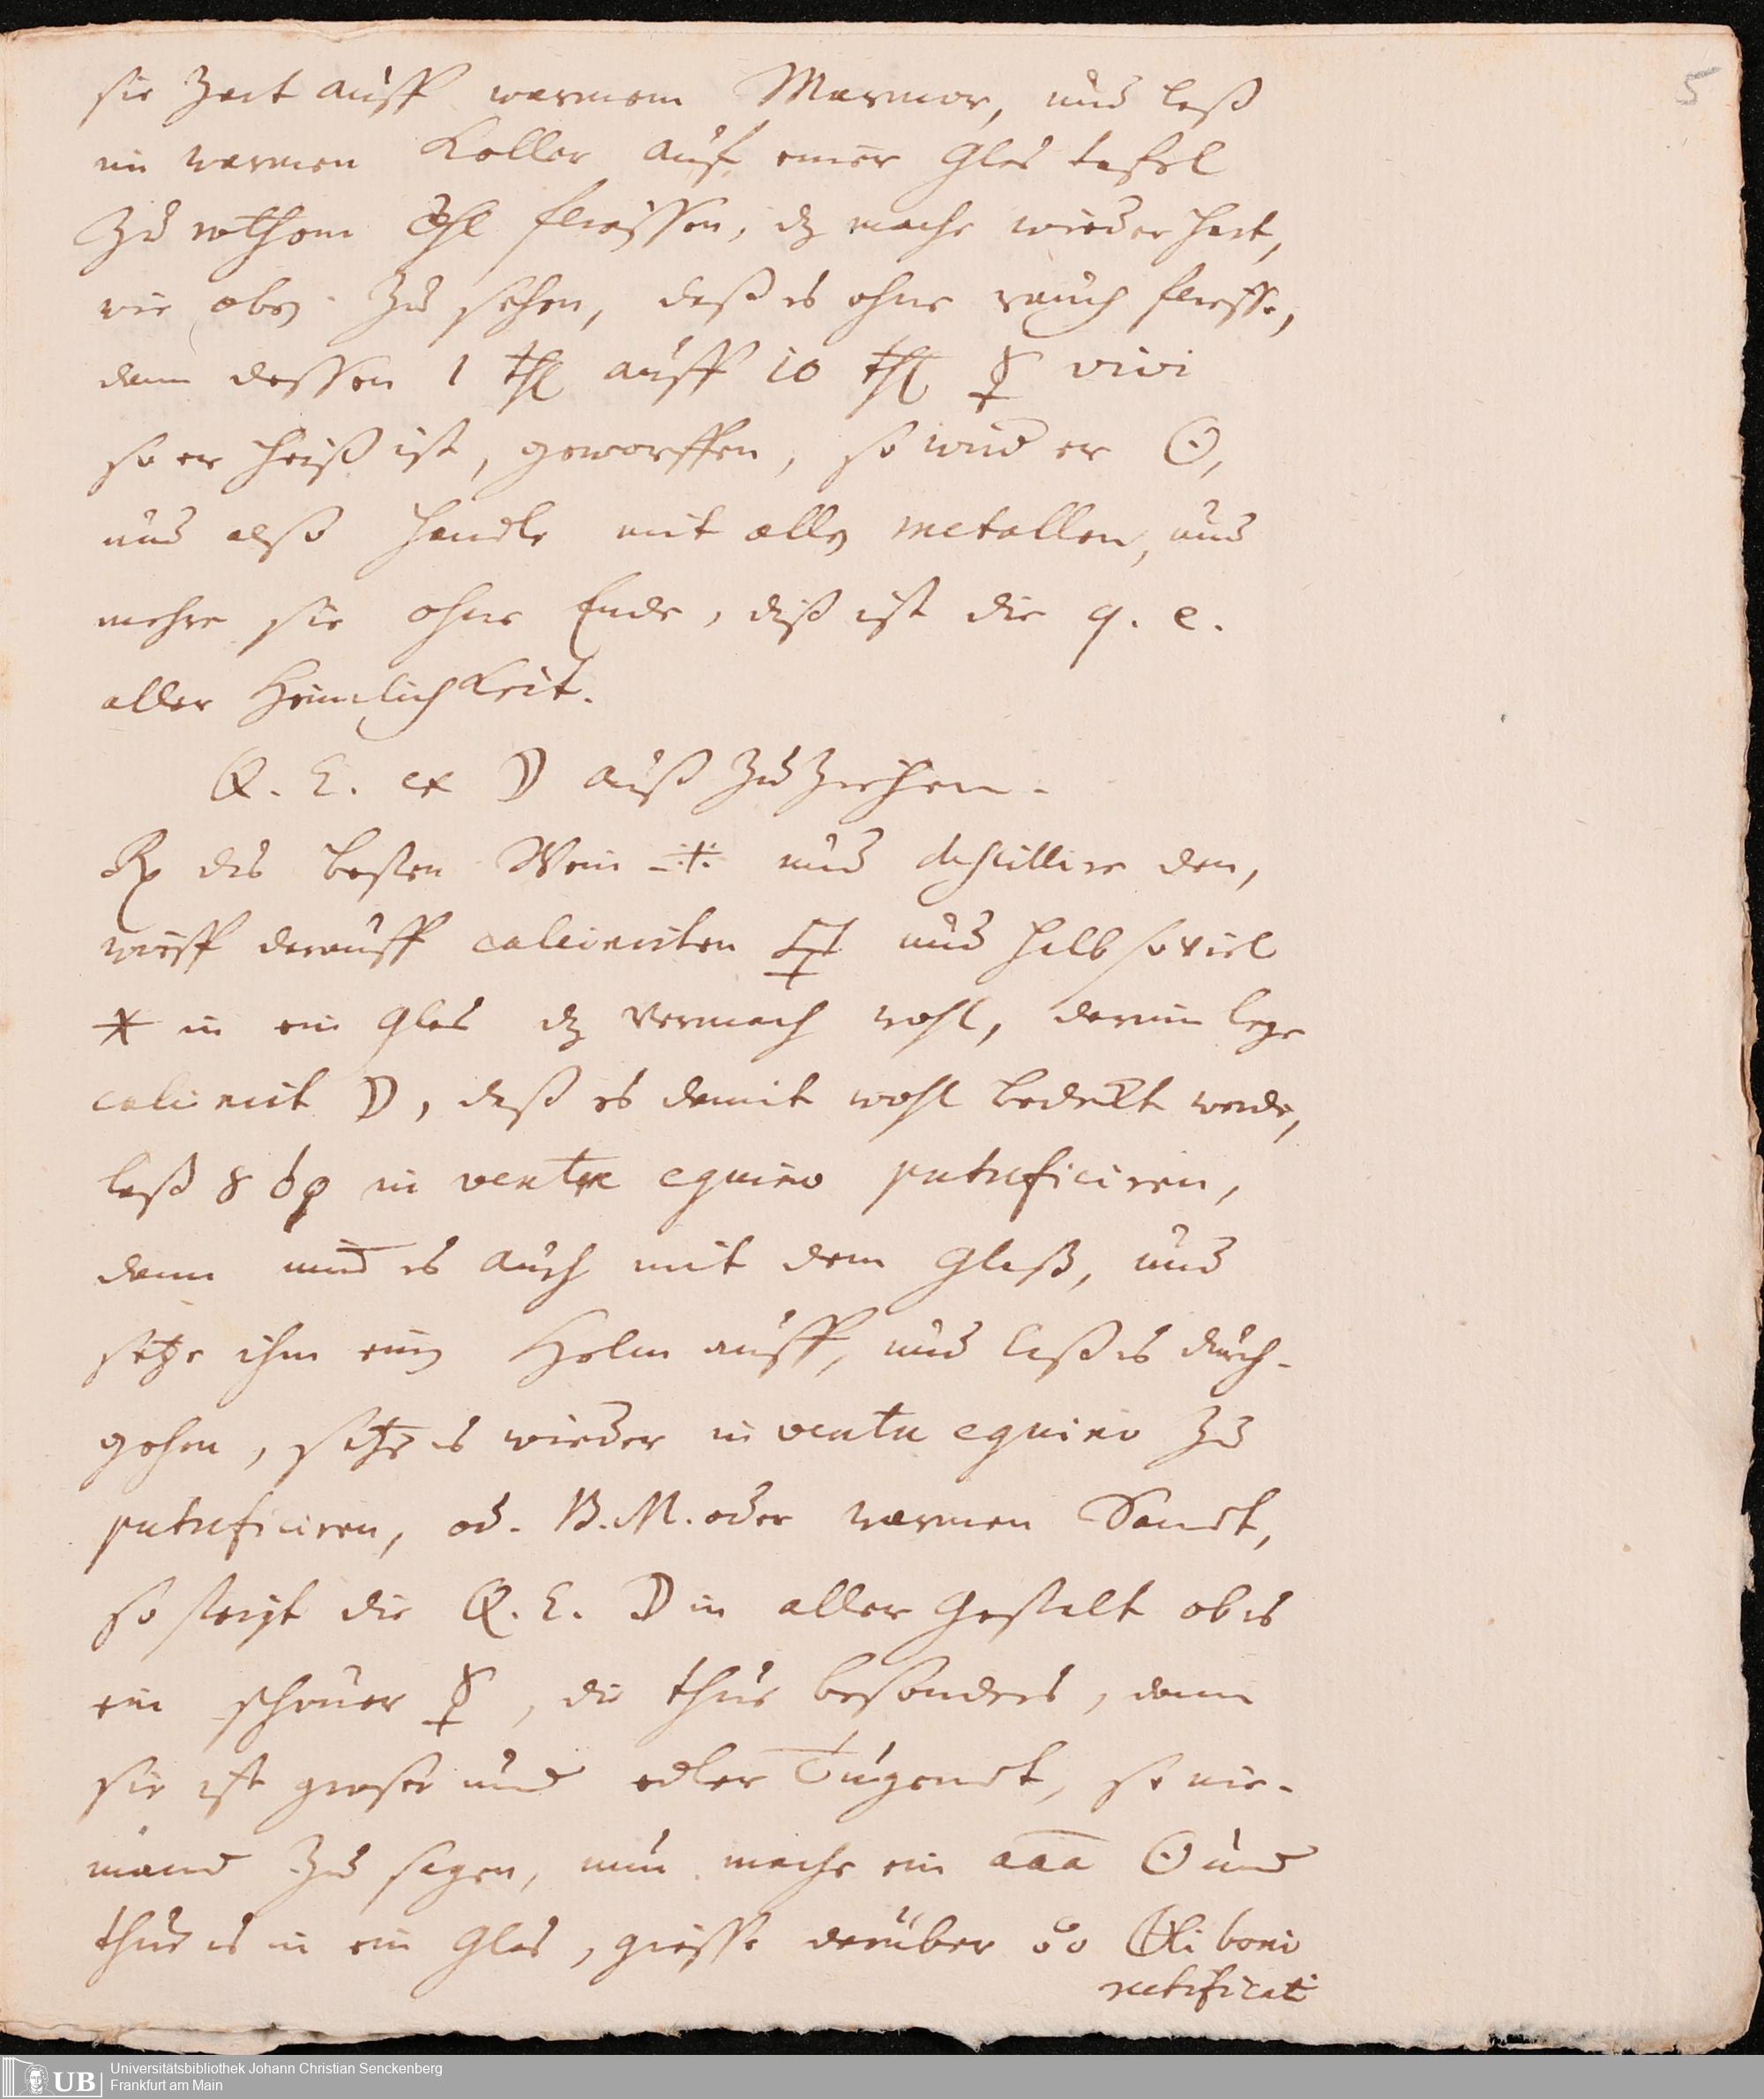 5
sie zart auff warmem Marmor, und laß
im warmen Keller auf einer Glas tafel
Zu rothem Öhl fliessen, dz mache wieder hart,
wie obē zu sehen, daß es ohne rauch fliesse,
dann dessen 1 thl auff 10 thl ☿ vivi
so er heiß ist, geworffen, so wird er ☉,
und also handle mit allē metallen, und
mehre sie ohne Ende, diß ist die q. e.
aller Heimlichkeit.
Q. E. ex ☽ auß zu ziehen.
℞ des besten Wein 🜊 und destillire den,
wirff darauff calcinirten 🜿 und halb so viel
🜹 in ein Glas dz vermach wohl, darein lege
calcinirt ☽, daß es damit wohl bedekt werde,
laß 8 in ventre equino putreficiren,
dann nim̄ es auch mit dem Glaß, und
setze ihm einē Helm auff, und laß es durch-
gehen, setze es wieder in ventre equino zu
putreficiren, od. B. M. oder warmen Sandt,
so steigt die Q. E. ☽ in aller Gestalt ob es
ein schöner ☿, die thue besonders, dann
sie ist grosser und edler Tugendt, so nie-
mand zu sagen, nun mache ein aaa ☉ und
thue es in ein Glas, giesse darüber Oli boni
rectificati
UB
Universitätsbibliothek Johann Christian Senckenberg
Frankfurt am Main